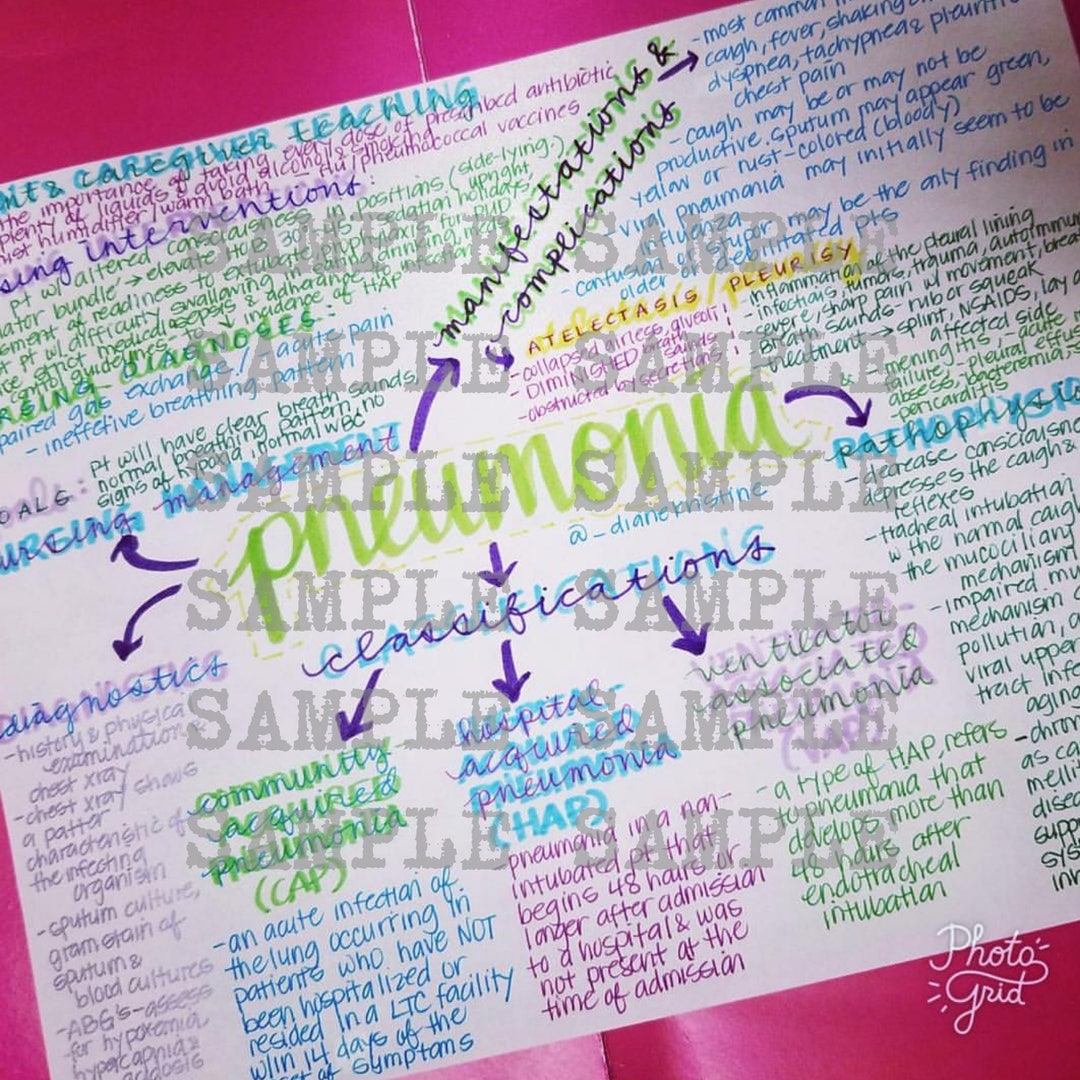 pneumonia
@_dianekristine
manifestations &
complications
- most common
cough, fever, shaking
dyspnea, tachypnea & pleuritic
chest pain
- cough may be or may not be
productive. sputum may appear green,
yelow or rust-colored (bloody)
viral pneumonia may initially seem to be
influenza
- confusion or stupor may be the only finding in
older or debilitated pts
ATELECTASIS / PLEURISY
- collapsed, airless, alveoli
- DIMINISHED breath sounds
- obstructed by secretions
inflammation of the pleural lining
infections, tumors, trauma, autoimmune
severe, sharp pain w/ movement,
Breath sounds - rub or squeak
Treatment → splint, NSAIDS, lay
affected side
- meningitis, acute
failure,
absess, pleural
bacteremia
- pericarditis
& CAREGIVER TEACHING
the importance of taking every dose of prescribed antibiotic
plenty of liquids, avoid alcohol & smoking
humidifier/warm bath - flu/pneumococcal vaccines
interventions
pt w/ altered consciousness in positions (side-lying, upright)
bundle → elevate HOB 30-45°, sedation holidays,
readiness to extubate,
for PUD
pt w/ difficulty swallowing
strict medical asepsis & adharance to
HAP
DIAGNOSES:
gas exchange / - acute pain
- ineffetive breathing pattern
GOALS:
pt will have clear breath sounds,
normal breathing pattern, no
signs of hypoxia, normal WBC
NURSING management
PATHOPHYSIO
- decrease consciousne
depresses the cough &
reflexes
- tracheal intubation
w the normal cough
the mucociliary
mechanism
- impaired mu
mechanism
pollution,
viral upper
tract infe
aging
- chron
as ca
mellit
disea
supp
sys
classifications
diagnostics
- history & physica
examination
chest xray
- chest xray shows
a patter
characteristic of
the infecting
organism
- sputum culture,
gram stain of
sputum &
blood cultures
- ABG's - assess
for hypoxemia,
hypercapnia &
acidosis
community
acquired
pneumonia
(CAP)
- an acute infection of
the lung occurring in
patients who have NOT
been hospitalized or
resided in a LTC facility
w/in 14 days of the
of symptoms
hospital-
acquired
pneumonia
(HAP)
pneumonia in a non-
intubated pt that
begins 48 hours or
longer after admission
to a hospital & was
not present at the
time of admission
ventilator-
associated
pneumonia
(VAP)
- a type of HAP, refers
to pneumonia that
develops more than
48 hours after
endotracheal
intubation
SAMPLE SAMPLE
SAMPLE SAMPLE
SAMPLE SAMPLE
SAMPLE SAMPLE
SAMPLE SAMPLE
SAMPLE SAMPLE
Photo
Grid